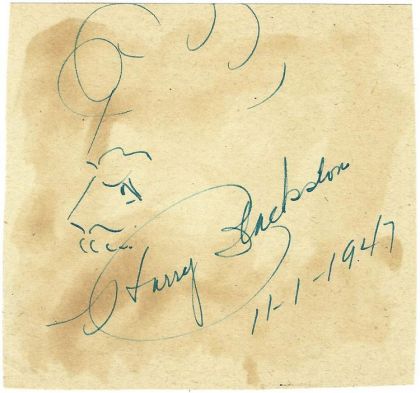 Harry Blackston
11-1-1947